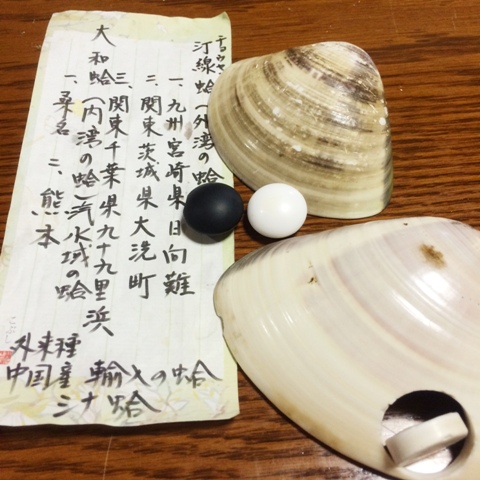 汀線蛤(外湾の蛤
一、九州宮崎県日向難
二、関東茨城県大洗町
三、関東千葉県九十九里浜
大和蛤(内湾の蛤)汽水域の蛤
一、桑名 二、熊本
外来種
中国産 輸入の蛤
シナ蛤